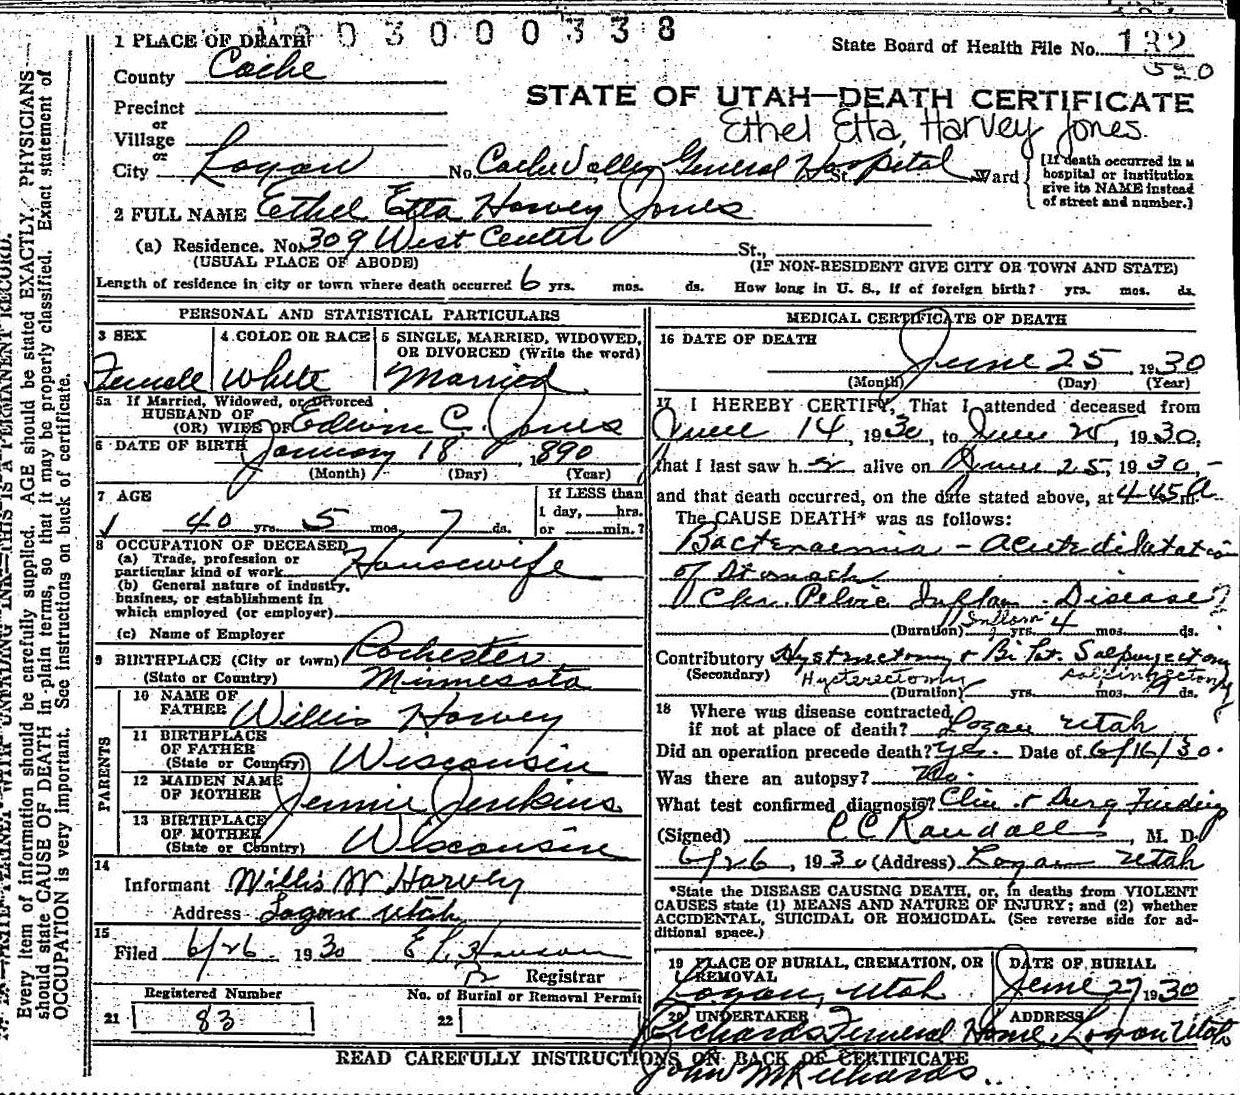 1003000338
1 PLACE OF DEATH
State Board of Health File No. 132
520
County Cache
STATE OF UTAH—DEATH CERTIFICATE
Precinct
or
Ethel Etta Harvey Jones.
Village
or
City Logan No. Cache Valley General Hospital St. Ward
[If death occurred in a hospital or institution give its NAME instead of street and number.]
2 FULL NAME Ethel Etta Harvey Jones
(a) Residence. No. 309 West Center St.,
(USUAL PLACE OF ABODE) (IF NON-RESIDENT GIVE CITY OR TOWN AND STATE)
Length of residence in city or town where death occurred 6 yrs. mos. ds. How long in U. S., if of foreign birth? yrs. mos. ds.
PERSONAL AND STATISTICAL PARTICULARS
3 SEX
Female
4 COLOR OR RACE
White
5 SINGLE, MARRIED, WIDOWED,
OR DIVORCED (Write the word)
Married
5a If Married, Widowed, or Divorced
HUSBAND OF
(OR) WIFE OF Edwin C. Jones
6 DATE OF BIRTH January 18, 1890
(Month) (Day) (Year)
7 AGE
40 yrs. 5 mos. 7 ds.
If LESS than
1 day, hrs.
or min.?
8 OCCUPATION OF DECEASED
(a) Trade, profession or
particular kind of work Housewife
(b) General nature of industry,
business, or establishment in
which employed (or employer)
(c) Name of Employer
9 BIRTHPLACE (City or town) Rochester
(State or Country) Minnesota
PARENTS
10 NAME OF
FATHER Willis Harvey
11 BIRTHPLACE
OF FATHER
(State or Country) Wisconsin
12 MAIDEN NAME
OF MOTHER Jennie Jenkins
13 BIRTHPLACE
OF MOTHER
(State or Country) Wisconsin
14
Informant Willis W Harvey
Address Logan Utah
15
Filed 6/26 1930 E L Hanson
Registrar
Registered Number
21 83
No. of Burial or Removal Permit
22
MEDICAL CERTIFICATE OF DEATH
16 DATE OF DEATH
June 25, 1930
(Month) (Day) (Year)
17 I HEREBY CERTIFY, That I attended deceased from
June 14, 1930, to June 25, 1930,
that I last saw her alive on June 25, 1930,
and that death occurred, on the date stated above, at 4:45 a m.
The CAUSE DEATH* was as follows:
Bacteraemia - acute dilatation
of stomach
Chr. Pelvic Inflam. Disease
(Duration) yrs. 4 mos. ds.
Contributory Hysterectomy & Bi Lat. Salpingectomy
(Secondary) Hysterectomy salpingectomy
(Duration) yrs. mos. ds.
18 Where was disease contracted
if not at place of death? Logan Utah
Did an operation precede death? Yes. Date of 6/16/30.
Was there an autopsy? No.
What test confirmed diagnosis? Clin. & Surg Finding
(Signed) C C Randall M. D.
6/26, 1930 (Address) Logan Utah
*State the DISEASE CAUSING DEATH, or, in deaths from VIOLENT
CAUSES state (1) MEANS AND NATURE OF INJURY; and (2) whether
ACCIDENTAL, SUICIDAL OR HOMICIDAL. (See reverse side for ad-
ditional space.)
19 PLACE OF BURIAL, CREMATION, OR
REMOVAL
Logan, Utah
DATE OF BURIAL
June 27, 1930
20 UNDERTAKER ADDRESS
Richards Funeral Home, Logan Utah
READ CAREFULLY INSTRUCTIONS ON BACK OF CERTIFICATE
John M Richards.
WRITE PLAINLY WITH UNFADING INK—THIS IS A PERMANENT RECORD.
Every item of information should be carefully supplied. AGE should be stated EXACTLY. PHYSICIANS
should state CAUSE OF DEATH in plain terms, so that it may be properly classified. Exact statement of
OCCUPATION is very important. See instructions on back of certificate.